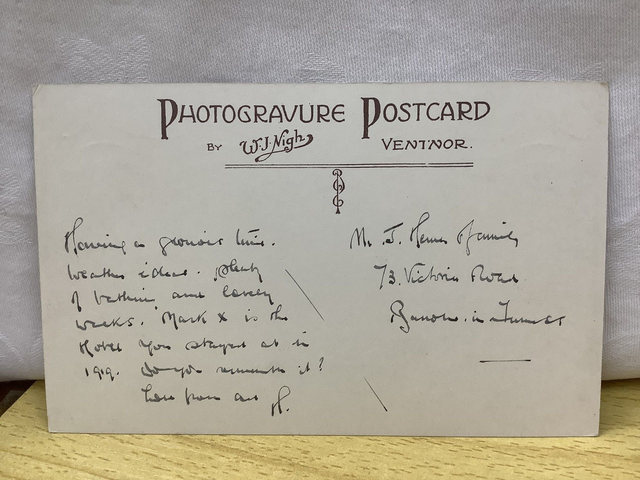 PHOTOGRAVURE POSTCARD
BY W.J. Nigh VENTNOR.
Having a glorious time.
Weather ideal. Plenty
of bathing and lovely
walks. Mark X is the
Hotel you stayed at in
1919. Do you remember it?
Love from all H.
Mr. J. & family
73. Victoria Road
Barrow-in-Furness